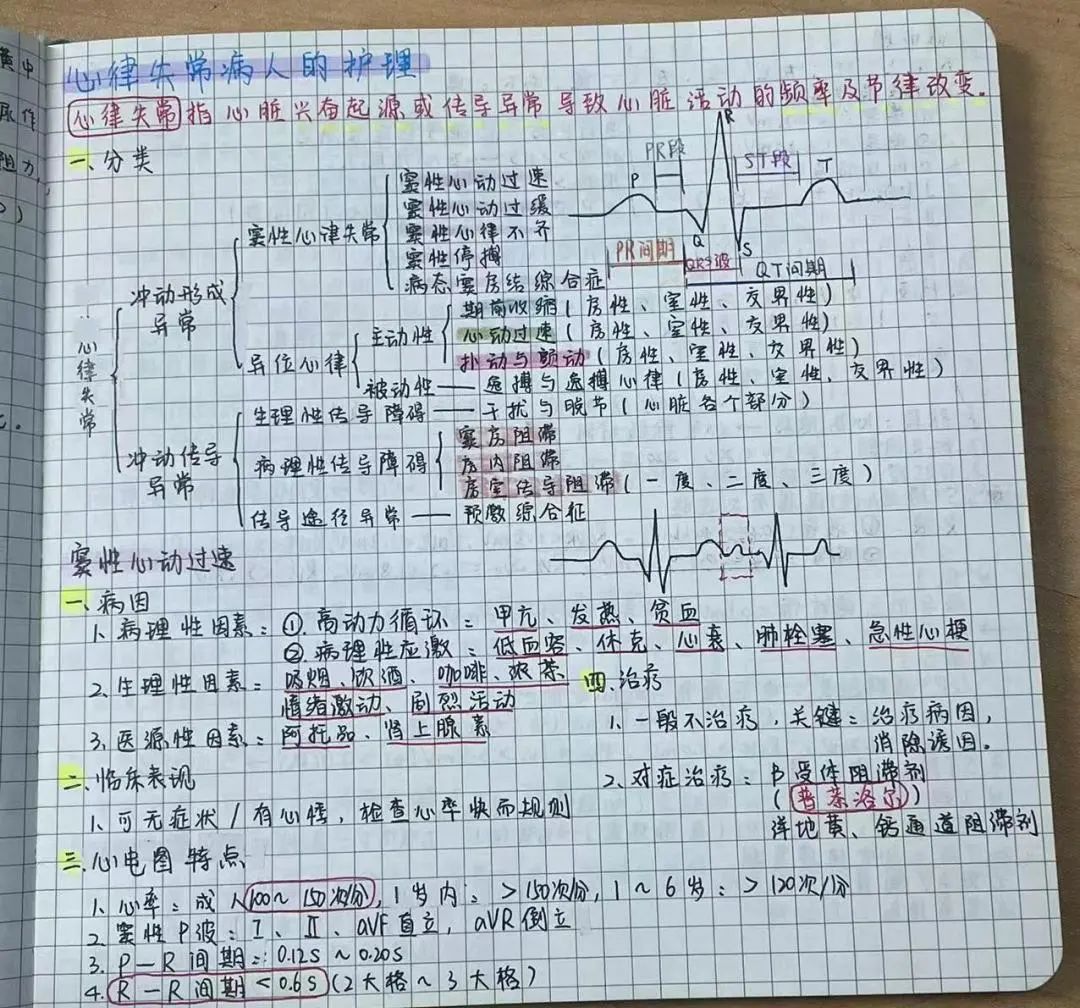 黄中
尿作
阻力,
心律失常病人的护理
心律失常指心脏兴奋起源或传导异常导致心脏活动的频率及节律改变.
一、分类
PR段
ST段
P
R
T
Q
S
PR间期
QRS波
QT间期
心律失常
冲动形成异常
窦性心律失常
窦性心动过速
窦性心动过缓
窦性心律不齐
窦性停搏
病态窦房结综合症
异位心律
主动性
期前收缩(房性、室性、交界性)
心动过速(房性、室性、交界性)
扑动与颤动(房性、室性、交界性)
被动性——逸搏与逸搏心律(房性、室性、交界性)
冲动传导异常
生理性传导障碍——干扰与脱节(心脏各个部分)
病理性传导障碍
窦房阻滞
房内阻滞
房室传导阻滞(一度、二度、三度)
传导途径异常——预激综合征
窦性心动过速
一、病因
1、病理性因素:①.高动力循环:甲亢、发热、贫血
②.病理性应激:低血容、休克、心衰、肺栓塞、急性心梗
2、生理性因素:吸烟、饮酒、咖啡、浓茶
情绪激动、剧烈活动
3、医源性因素:阿托品、肾上腺素
二、临床表现
1、可无症状/有心悸,检查心率快而规则
三、心电图特点
1、心率:成人100~150次/分,1岁内:>150次/分,1~6岁:>120次/分
2、窦性P波:I、II、aVF直立,aVR倒立
3.P—R间期:0.12S~0.20S
4.R—R间期<0.6S(2大格~3大格)
四、治疗
1、一般不治疗,关键:治疗病因,
消除诱因。
2、对症治疗:β受体阻滞剂
(普萘洛尔)
洋地黄、钙通道阻滞剂